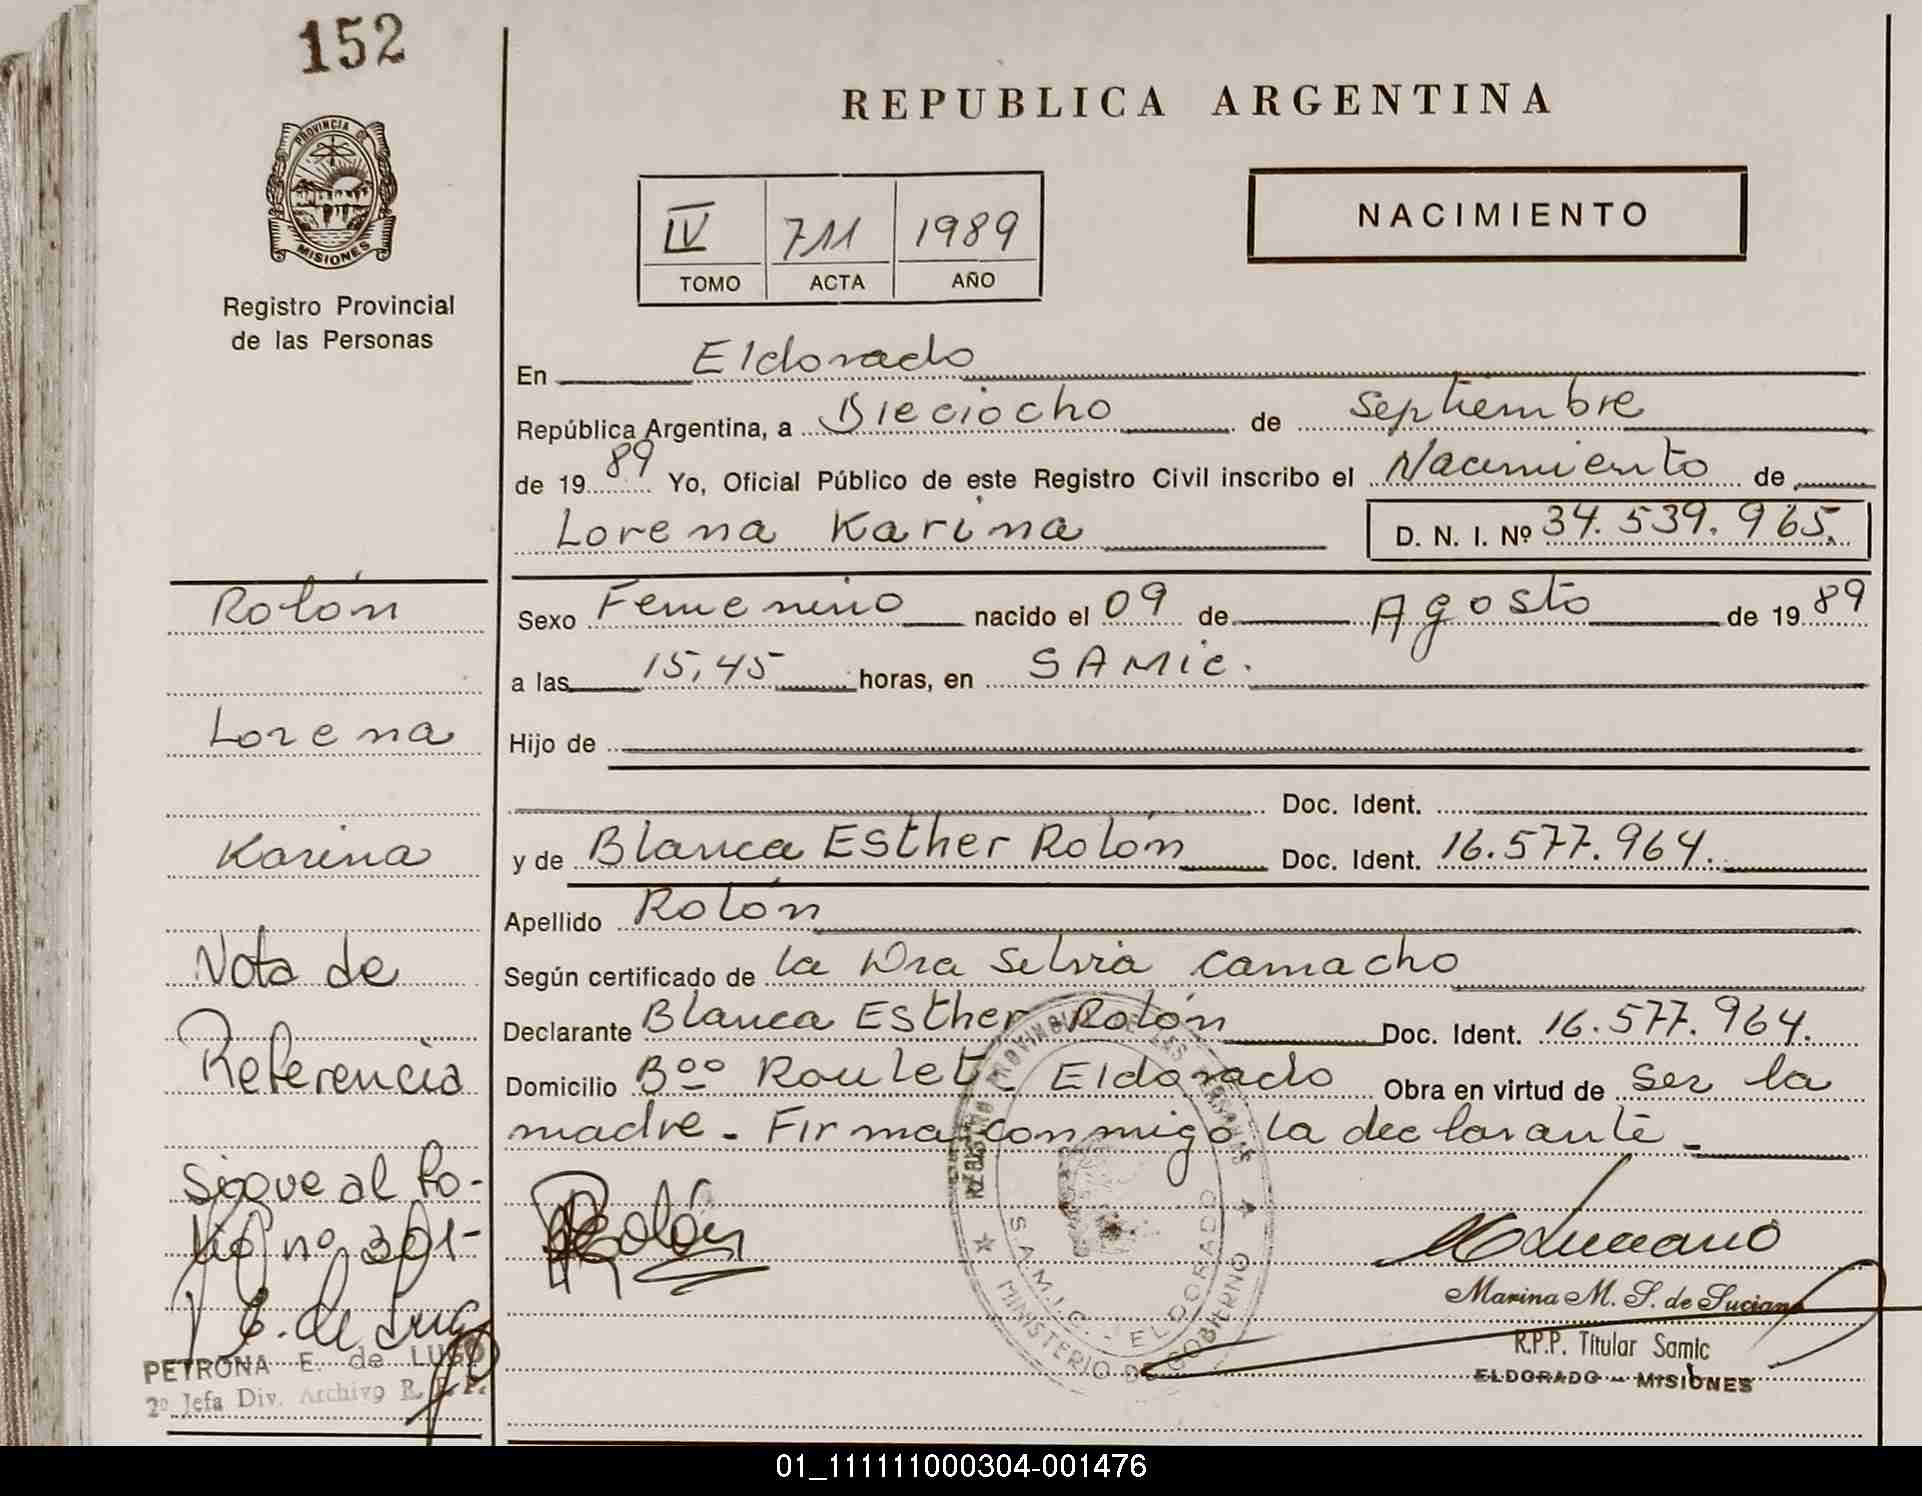 152
PROVINCIA DE
MISIONES
Registro Provincial
de las Personas
REPUBLICA ARGENTINA
IV 711 1989
TOMO ACTA AÑO
NACIMIENTO
En Eldorado
República Argentina, a Dieciocho de Septiembre
de 1989 Yo, Oficial Público de este Registro Civil inscribo el Nacimiento de
Lorena Karina D. N. I. Nº 34.539.965.
Sexo Femenino nacido el 09 de Agosto de 1989
a las 15,45 horas, en SAMIC.
Hijo de
Doc. Ident.
y de Blanca Esther Rolón Doc. Ident. 16.577.964.
Apellido Rolón
Según certificado de la Dra Silvia Camacho
Declarante Blanca Esther Rolón Doc. Ident. 16.577.964.
Domicilio Bºº Roulet - Eldorado Obra en virtud de ser la
madre - Firma conmigo la declarante -
Rolón
REGISTRO PROVINCIAL DE LAS PERSONAS
S.A.M.I.C. - ELDORADO
MINISTERIO DE GOBIERNO
Marina M. S. de Luciano
R.P.P. Titular Samic
ELDORADO - MISIONES
Rolón
Lorena
Karina
Nota de
Referencia
Sigue al Fo-
lio nº 301-
P E. de Lugo
PETRONA E. de LUGO
2º Jefa Div. Archivo R. P. P.
01_111111000304-001476